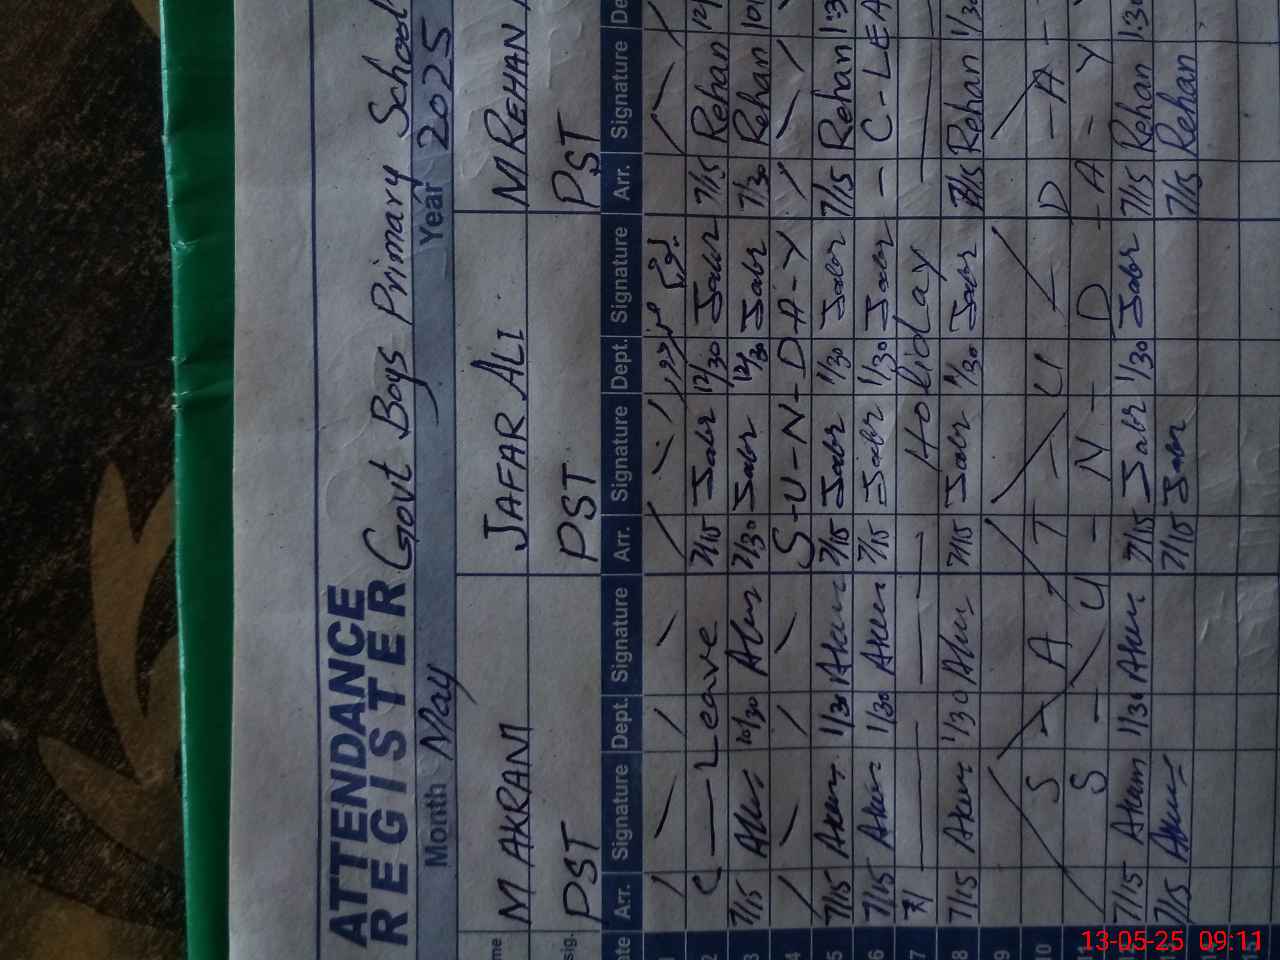 ATTENDANCE
REGISTER Govt Boys Primary School
Month May Year 2025
M AKRAM JAFAR ALI M REHAN
PST PST PST
Arr. Signature Dept. Signature Arr. Signature Dept. Signature Arr. Signature
2 C — Leave 7/15 Jabr 12/30 Jabr 7/15 Rehan
3 7/15 Akm 10/30 Akm 7/30 Jabr 12/30 Jabr 7/30 Rehan
4 S-U-N-D-A-Y
5 7/15 Akm 1/30 Akm 7/15 Jabr 1/30 Jabr 7/15 Rehan 1:3
6 7/15 Akm 1/30 Akm 7/15 Jabr 1/30 Jabr — C-LEA
7 7/ Holiday
8 7/15 Akm 1/30 Akm 7/15 Jabr 1/30 Jabr 7/15 Rehan 1/30
10 S - A - T - U - D - A -
11 S - U - N - D - A - Y
12 7/15 Akm 1/30 Akm 7/15 Jabr 1/30 Jabr 7/15 Rehan 1:30
13 7/15 Akm 7/15 Jabr 7/15 Rehan
14
15
13-05-25 09:11